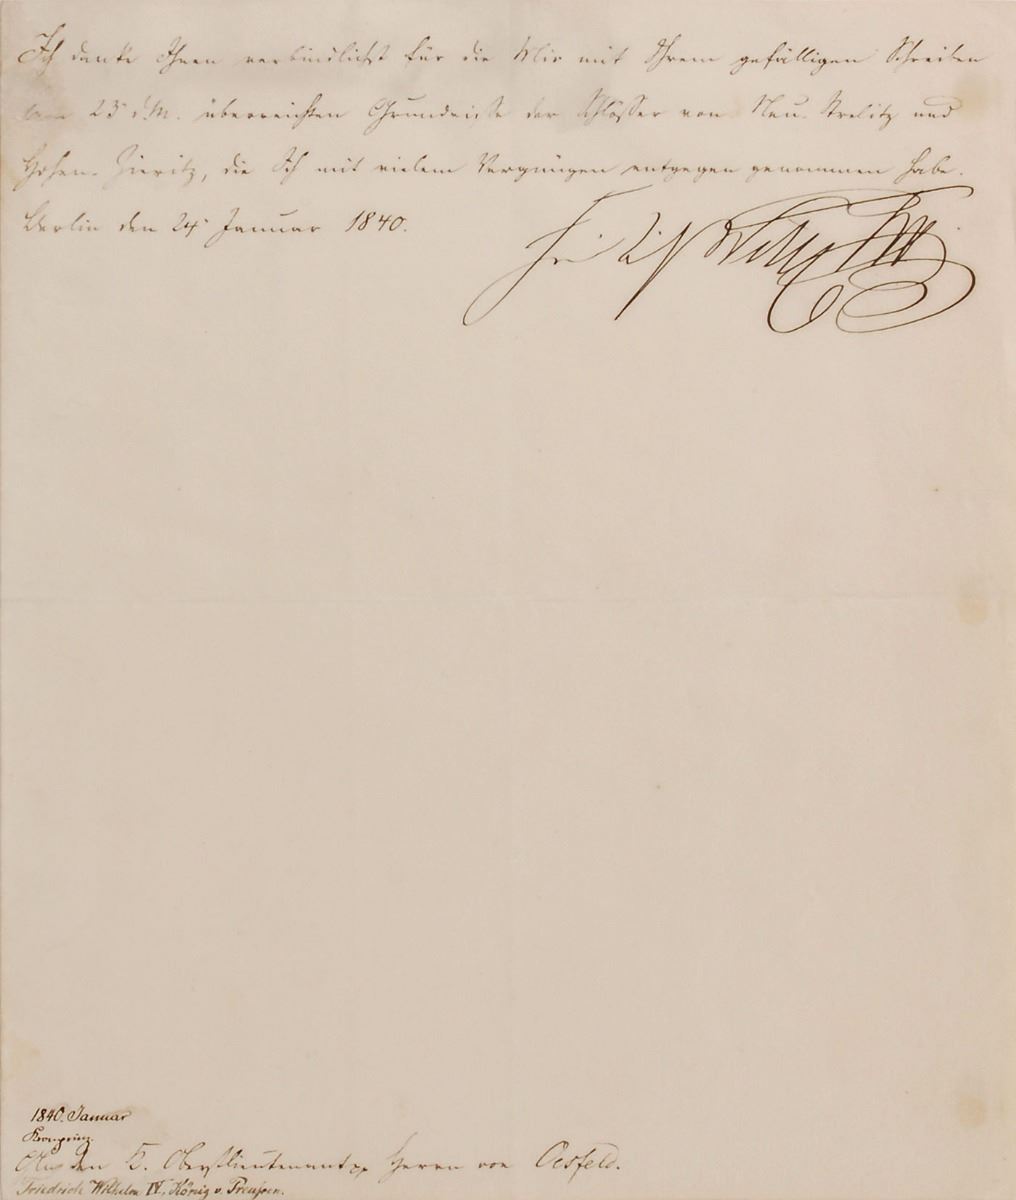 Ich danke Ihnen verbindlichst für die Mir mit Ihrem gefälligen Schreiben
vom 23 d. M. überreichten Grundrisse der Schlösser von Neu-Strelitz und
Hohen-Zieritz, die Ich mit vielem Vergnügen entgegen genommen habe.
Berlin den 24 Januar 1840.
Friedrich Wilhelm
1840. Januar
Kronprinz
An den K. Oberstlieutenant pp Herrn von Oesfeld.
Friedrich Wilhelm IV., König v. Preußen.